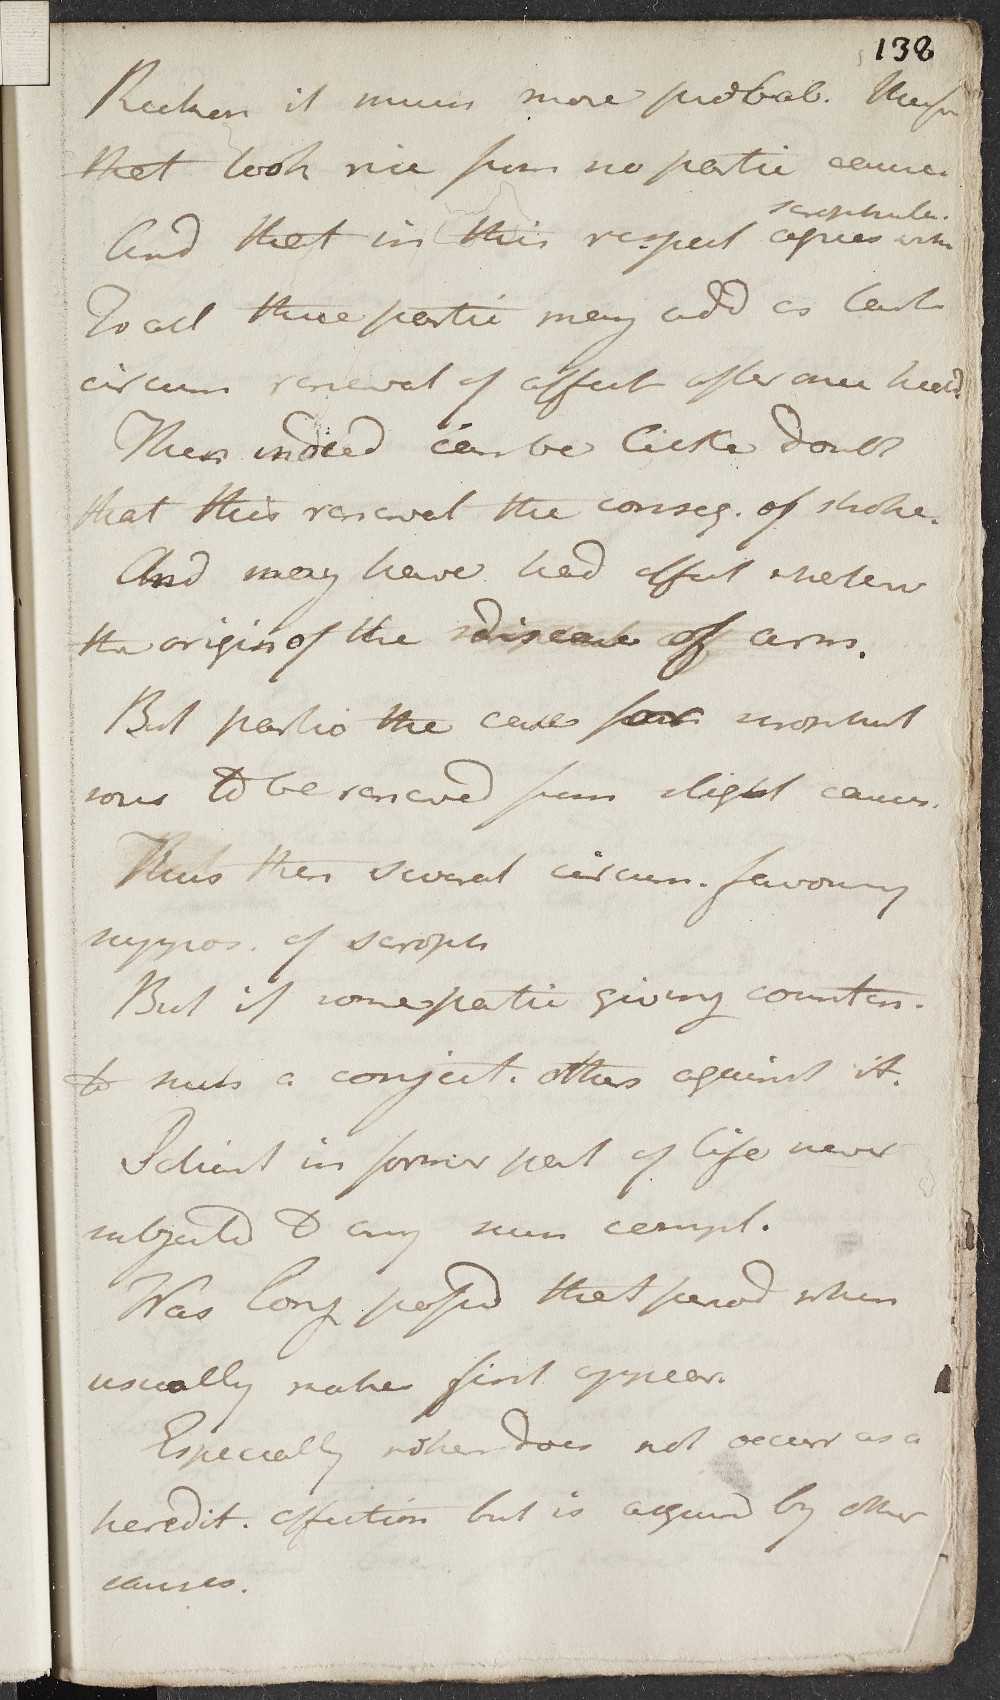 138
Reckon it much more probab. therefor
that took rise from no partic cause.
scrophula.
And that in this respect agrees with
To all these partic may add as last
circum renewal of affect after once heald.
There indeed can be little doubt
that this renewal the conseq. of stroke.
And may have had effect
the origin of the disease of arm.
But partic the case for scrophul
sores to be renewed from slight causes.
Thus then several circum. favouring
suppos. of scroph
But if some partic giving counten.
to such a conject. others against it.
Patient in former part of life never
subjected to any such compl.
Was long passed that period when
usually makes first appear.
Especially when does not occur as a
heredit. affection but is acquird by other
causes.